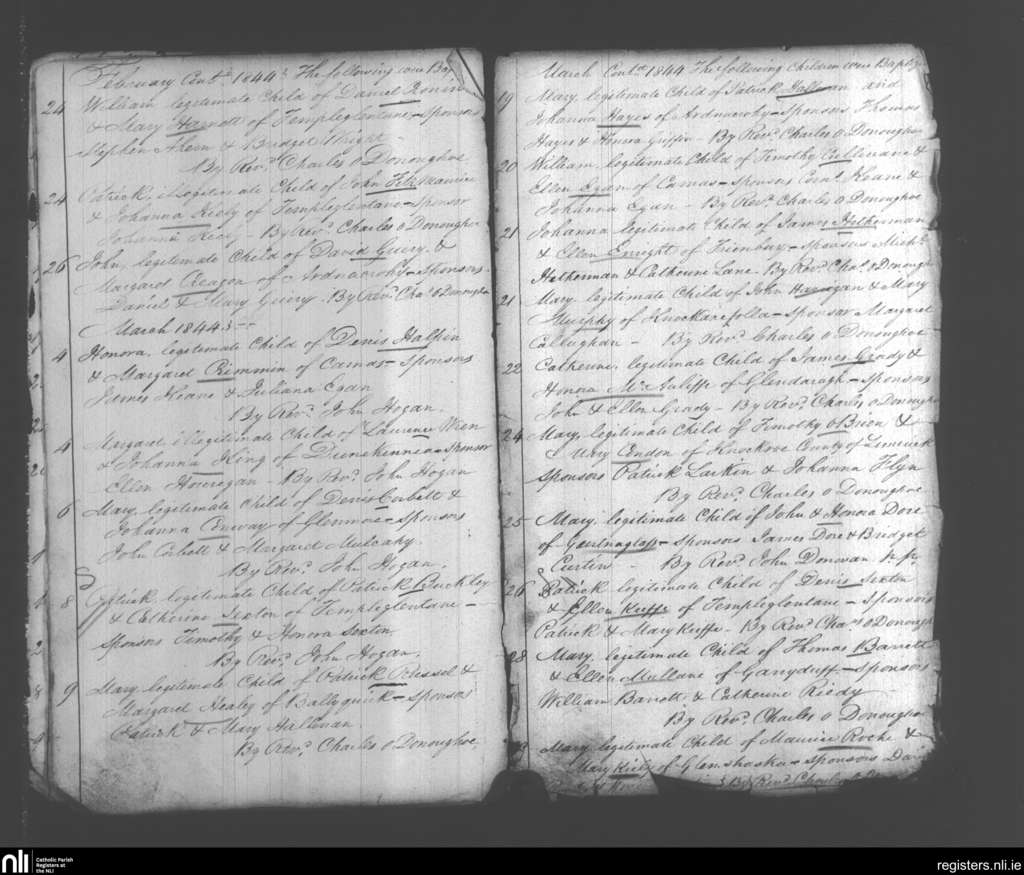 February Contd. 1844 : The following were Bap
24 William legitimate Child of Daniel Ronin
& Mary Harnott of Templeglentane, Sponsors
Stephen Ahern & Bridget Wright
By Revd. Charles o Donoughoe
24 Patrick, illegitimate Child of John FitzMaurice
& Johanna Keely of Templeglentane - Sponsor
Johanna Keely - By Revd. Charles o Donoughoe
26 John, legitimate Child of David Guiry &
Margaret Reagon of Ardnacrohy - Sponsors
Daniel & Mary Guiry - By Revd. Chas. o Donoughoe
March 1844 : --
4 Honora, legitimate Child of Denis Halpin
& Margaret Rimmin of Camas - Sponsors
James Keane & Juliana Egan
By Revd. John Hogan.
4 Margaret illegitimate Child of Lawrence Wren
& Johanna King of - Sponsor
Ellen Hourogan - By Revd. John Hogan
6 Mary, legitimate Child of Denis Corbett &
Johanna Conway of Glenmore - sponsors
John Corbett & Margaret Mulcahy.
By Revd. John Hogan.
8 Patrick legitimate Child of Patrick Buckley
& Catherine Sexton of Templeglentane -
sponsors Timothy & Honora Sexton.
By Revd. John Hogan.
9 Mary legitimate Child of Patrick &
Margaret Healey of Ballyquirk - sponsors
Patrick & Mary Hallinan
By Revd. Charles o Donoughoe.
March Contd. 1844 The following Children were Baptiz
19 Mary legitimate Child of Patrick and
Johanna Hayes of Ardnacrohy - Sponsors Thomas
Hayes & Honora Griffin - By Revd. Charles o Donoughoe
20 William, legitimate Child of Timothy Cullenane &
Ellen Egan of Camas - sponsors Corns. Keane &
Johanna Egan - By Revd. Charles o Donoughoe
21 Johanna legitimate Child of James Helherman
& Ellen Enright of - sponsors Michl.
Helherman & Catherine Lane. By Revd. Chas. o Donough
21 Mary, legitimate Child of John & Mary
Murphy of Knockanefolla - sponsor Margaret
Callughan - By Revd. Charles o Donoughoe
22 Catherine, legitimate Child of James Grady &
Honora McAuliffe of Glendaragh - Sponsors
John & Ellen Grady - By Revd. Charles o Donoughoe
24 Mary, legitimate Child of Timothy o Brien &
Mary Condon of Knockroe County of Limerick
sponsors Patrick Larkin & Johanna Flyn
By Revd. Charles o Donoughoe
25 Mary legitimate Child of John & Honora Dore
of - sponsors James Dore & Bridget
Curtin - By Revd. John Donovan p. p.
26 Patrick legitimate Child of Denis Sexton
& Ellen Keiffe of Templeglentane - sponsors
Patrick & Mary Keiffe - By Revd. Chas. o Donough
28 Mary, legitimate Child of Thomas Barrett
& Ellen Mullane of Garryduff - sponsors
William Barrett & Catherine Riedy
By Revd. Charles o Donoughoe
Mary, legitimate Child of Maurice Roche &
Mary Kiely of Glenshaska - sponsors
By Revd. Charles
nli Catholic Parish
Registers at
the NLI
registers.nli.ie